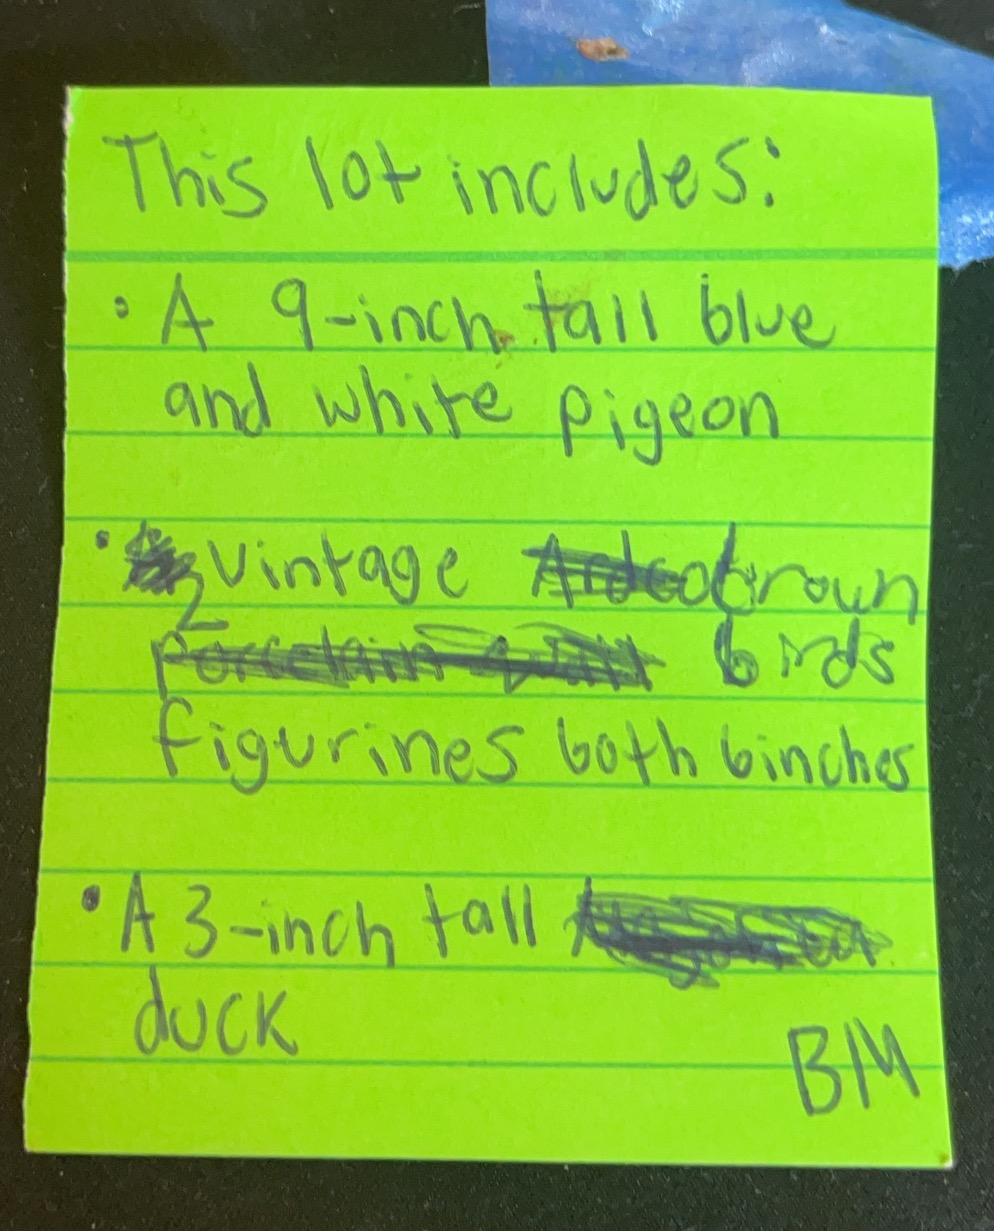 This lot includes:
• A 9-inch tall blue
and white pigeon
• 2 vintage brown
birds
figurines both 6inches
• A 3-inch tall
duck
BM